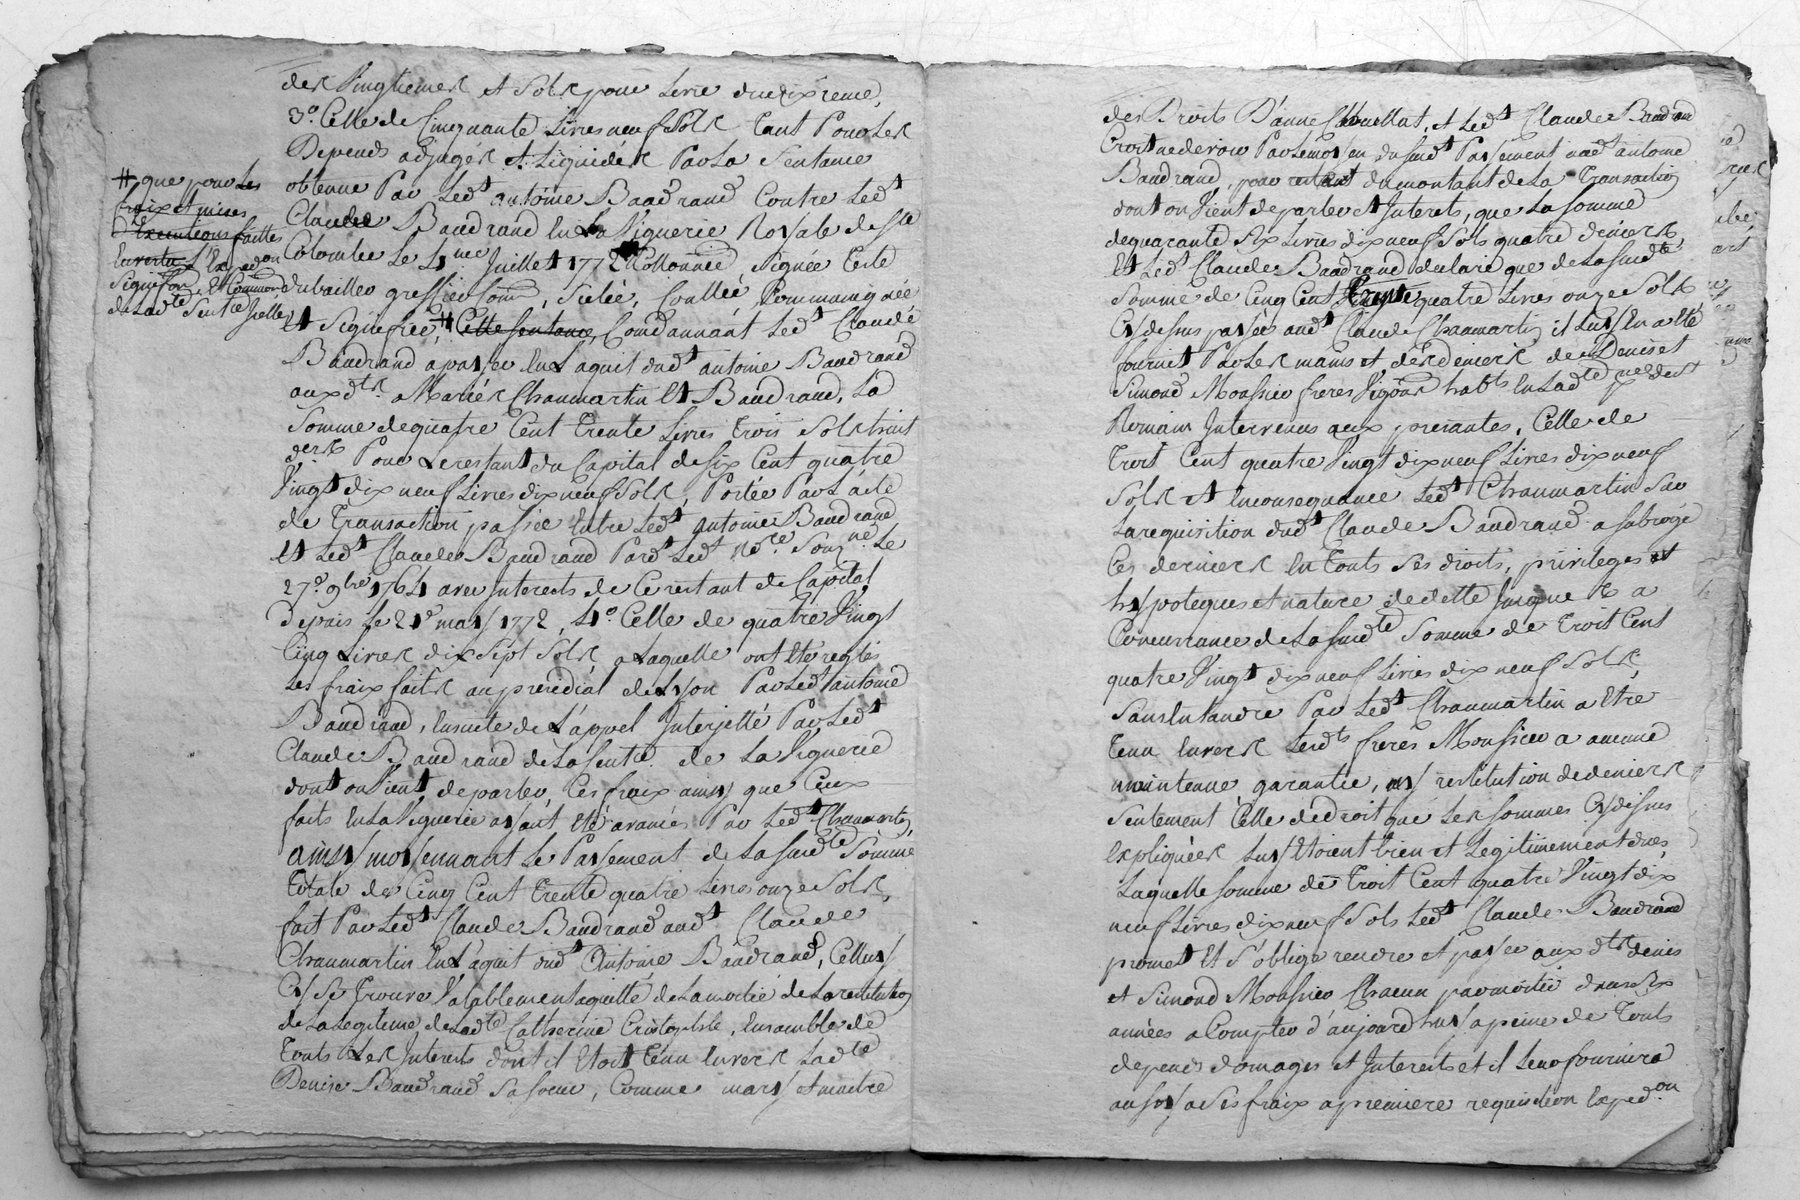 des Vingtiemes et Sols pour Livre du dixieme,
3.º Celle de Cinquante Livres neuf Sols tant Pour Les
Depends adjugés et Liquidés Par La Sentance
obtenue Par Led.t antoine Baudrand Contre Led.t
Claude Baudrand En La Viguerie Royale de Ste
Colombe Le 4me Juillet 1772 Collonnée, signée Teste
dubailler greffier Comis, Sielée, Contlée Communiquée
et Signefiée, # Cette Sentance, Condannant Led.t Claude
Baudrand a payer En L'aquit dud.t antoine Baudrand
aux d.ts Mariés Chaumartin Et Baudrand, La
Somme de quatre Cent trente Livres trois Sols huit
ders. Pour Le restant du Capital de six Cent quatre
Vingt dix neuf Livres dix neuf Sols, Portée Par L'acte
de Transaction passée Entre Led.t antoine Baudrand
Et Led.t Claude Baudrand Pard.t Led.t Nore. Souzné. Le
27.e 9bre 1764 avec Interests de Ce restant de Capital
Depuis Le 21.e may 1772, 4.º Celle de quatre Vingt
Cinq Livres dix Sept Sols, a Laquelle ont Eté reglés
Les fraix faits au presedial de Lyon Par Led.t antoine
Baudrand, Ensuite de L'appel Interjetté Par Led.t
Claude Baudrand de La Sentce de La Viguerie
dont on Vient de parler, Ces fraix ainsy que Ceux
faits En La Viguerie ayant Eté avancés Par Led.t Chaumartin,
ainsy moyennant Le Payement de La susd.te Somme
Totale de Cinq Cent Trente quatre Livres onze Sols,
fait Par Led.t Claude Baudrand aud.t Claude
Chaumartin En L'aquit dud.t Antoine Baudrand, Celluy
Cy Se trouve Valablement aquitté de La moitié de La restitution
de La Legitime de Lad.te Catherine Cristophle, Ensamble de
touts Les Interests dont il Etoit tenu Envers Lad.te
Denise Baudrand Sa Soeur, Comme mary et maitre
# que pour Les
fraix et mises
D'Executions faittes
En vertu L'Exped.on
Signif.on Et Common
de Lad.te Sentce
des Droits D'anne Chouellat, et Led.t Claude Baudrand
Croit ne devoir Par Le moyen du susd.t Payement aud.t antoine
Baudrand, pour restant du montant de La Transaction
dont on Vient de parler et Interets, que La Somme
de quarante Six Livres dix neuf Sols quatre deniers,
Et Led.t Claude Baudrand declare que de La susd.te
Somme de Cinq Cent trente quatre Livres onze Sols
Cy dessus payée aud.t Claude Chaumartin il Luy En a Eté
fournit Par Les mains et des deniers de Denis et
Simond Moussier freres Vigons habts En Lad.te de St
Romain Intervenus aux presantes, Celle de
Troit Cent quatre Vingt dix neuf Livres dix neuf
Sols et En consequance Led.t Chaumartin Sur
La requisition dud.t Claude Baudrand a subrogé
Ces derniers En touts Ses droits, privileges et
hypoteques et nature de dette Jusque a
Concurrance de La susd.te Somme de troit Cent
quatre Vingt dix neuf Livres dix neuf Sols,
Sans Entandre Par Led.t Chaumartin a Etre
tenu Envers Lesd.ts freres Moussier a aucune
maintenue garantie, ny restitution de deniers
Seulement Celle de droit que Les Sommes Cy dessus
Expliquées Luy Etoient bien et Legitimement dues
Laquelle Somme de troit Cent quatre Vingt dix
neuf Livres dix neuf Sols Led.t Claude Baudrand
promet Et S'oblige rendre et payer aux d.ts denis
et Simond Moussier Chacun par moitié dans Six
années a Compter d'aujourd'huy a peine de touts
depens domages et Interests et il Leur fournira
aussy a Ses fraix a premiere requisition Exped.on